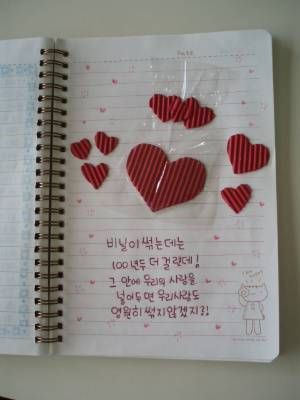 Date.
비닐이 썪는데는
100년두 더 걸린데!
그 안에 우리의 사랑을
넣어두면 우리사랑도
영원히 썪지않겠지?!